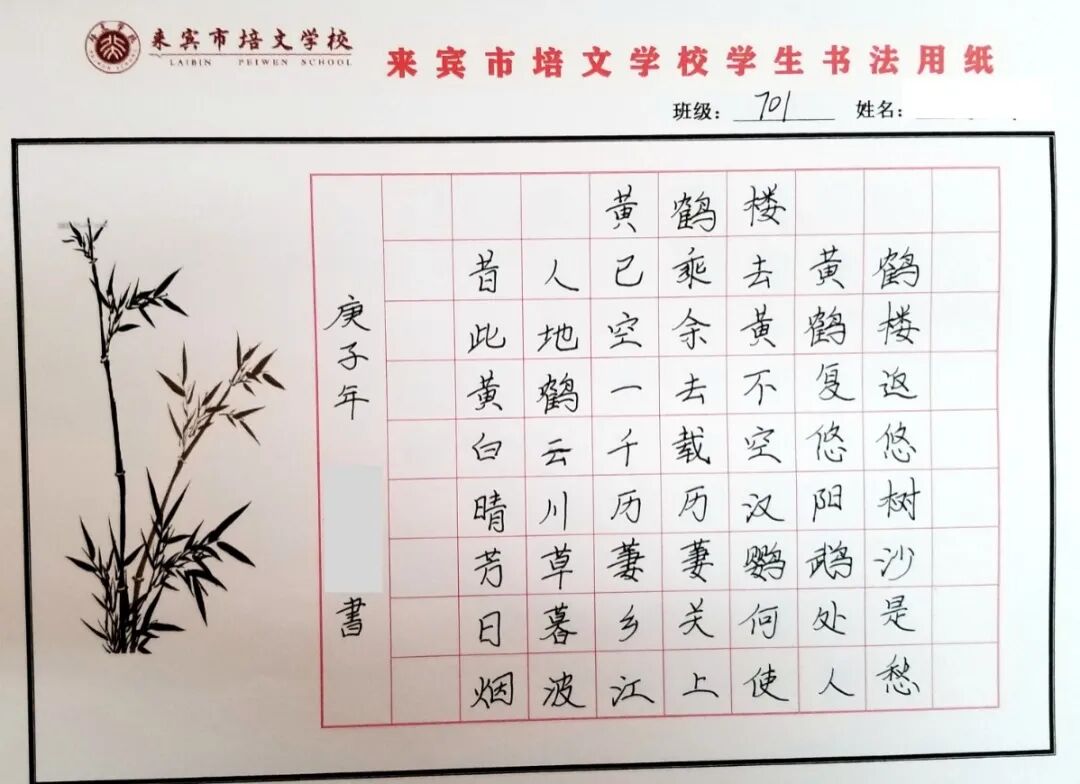 来宾市培文学校
LAIBIN PEIWEN SCHOOL
来宾市培文学校学生书法用纸
班级： 701 姓名：
黄鹤楼
昔人已乘去黄鹤
此地空余黄鹤楼
黄鹤一去不复返
白云千载空悠悠
晴川历历汉阳树
芳草萋萋鹦鹉沙
日暮乡关何处是
烟波江上使人愁
庚子年
書